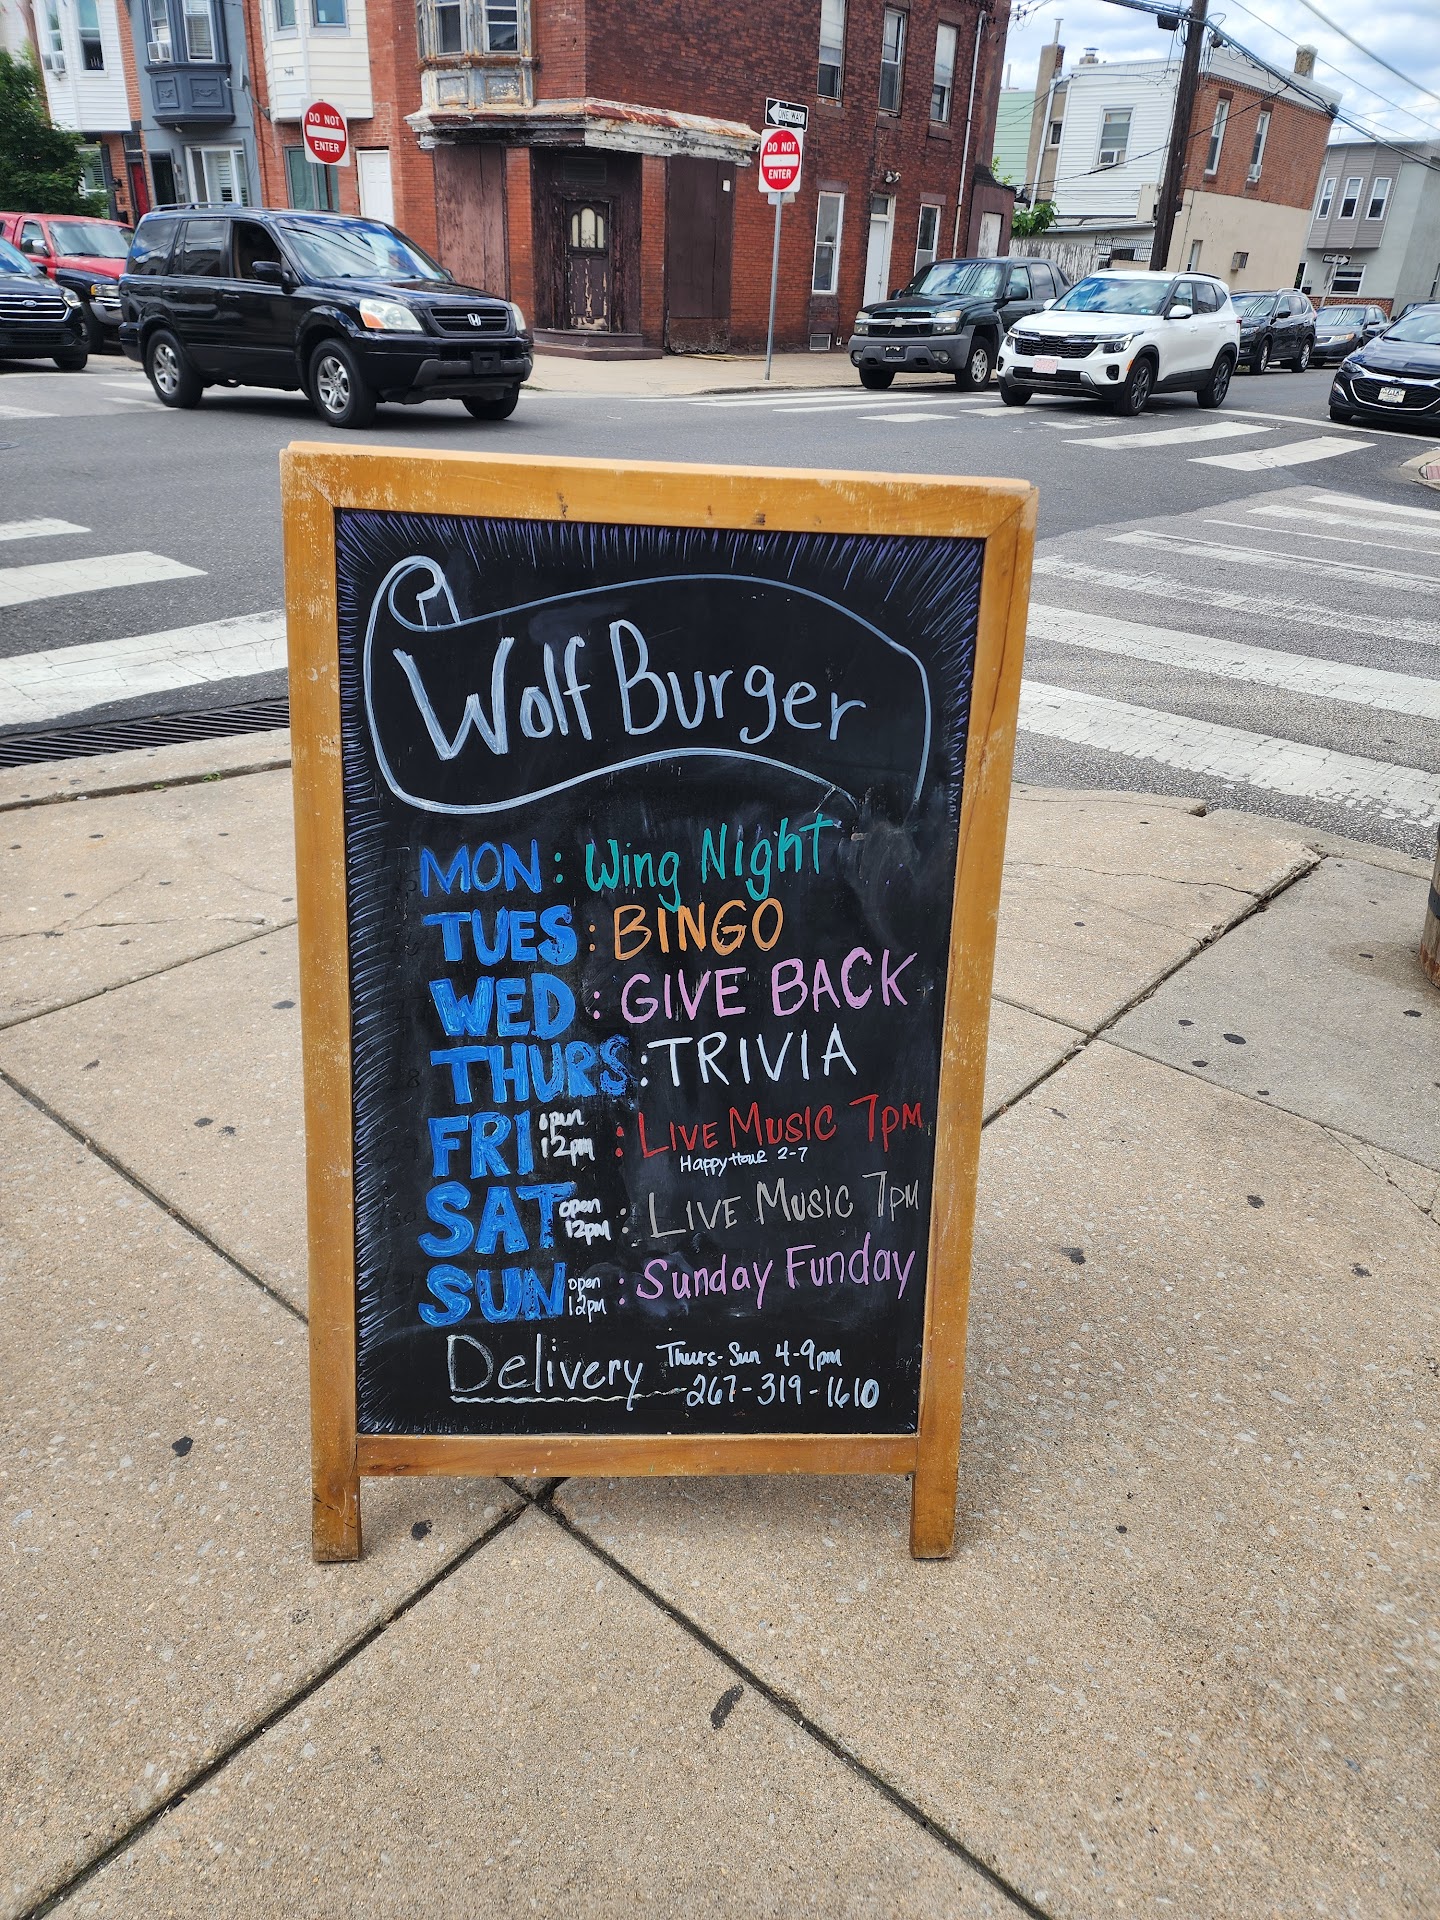 DO NOT
ENTER
ONE WAY
DO NOT
ENTER
Wolf Burger
MON: Wing Night
TUES: BINGO
WED: GIVE BACK
THURS: TRIVIA
FRI open 12pm : LIVE MUSIC 7PM
Happy Hour 2-7
SAT open 12pm : LIVE MUSIC 7PM
SUN open 12pm : Sunday Funday
Delivery Thurs-Sun 4-9pm
267-319-1610